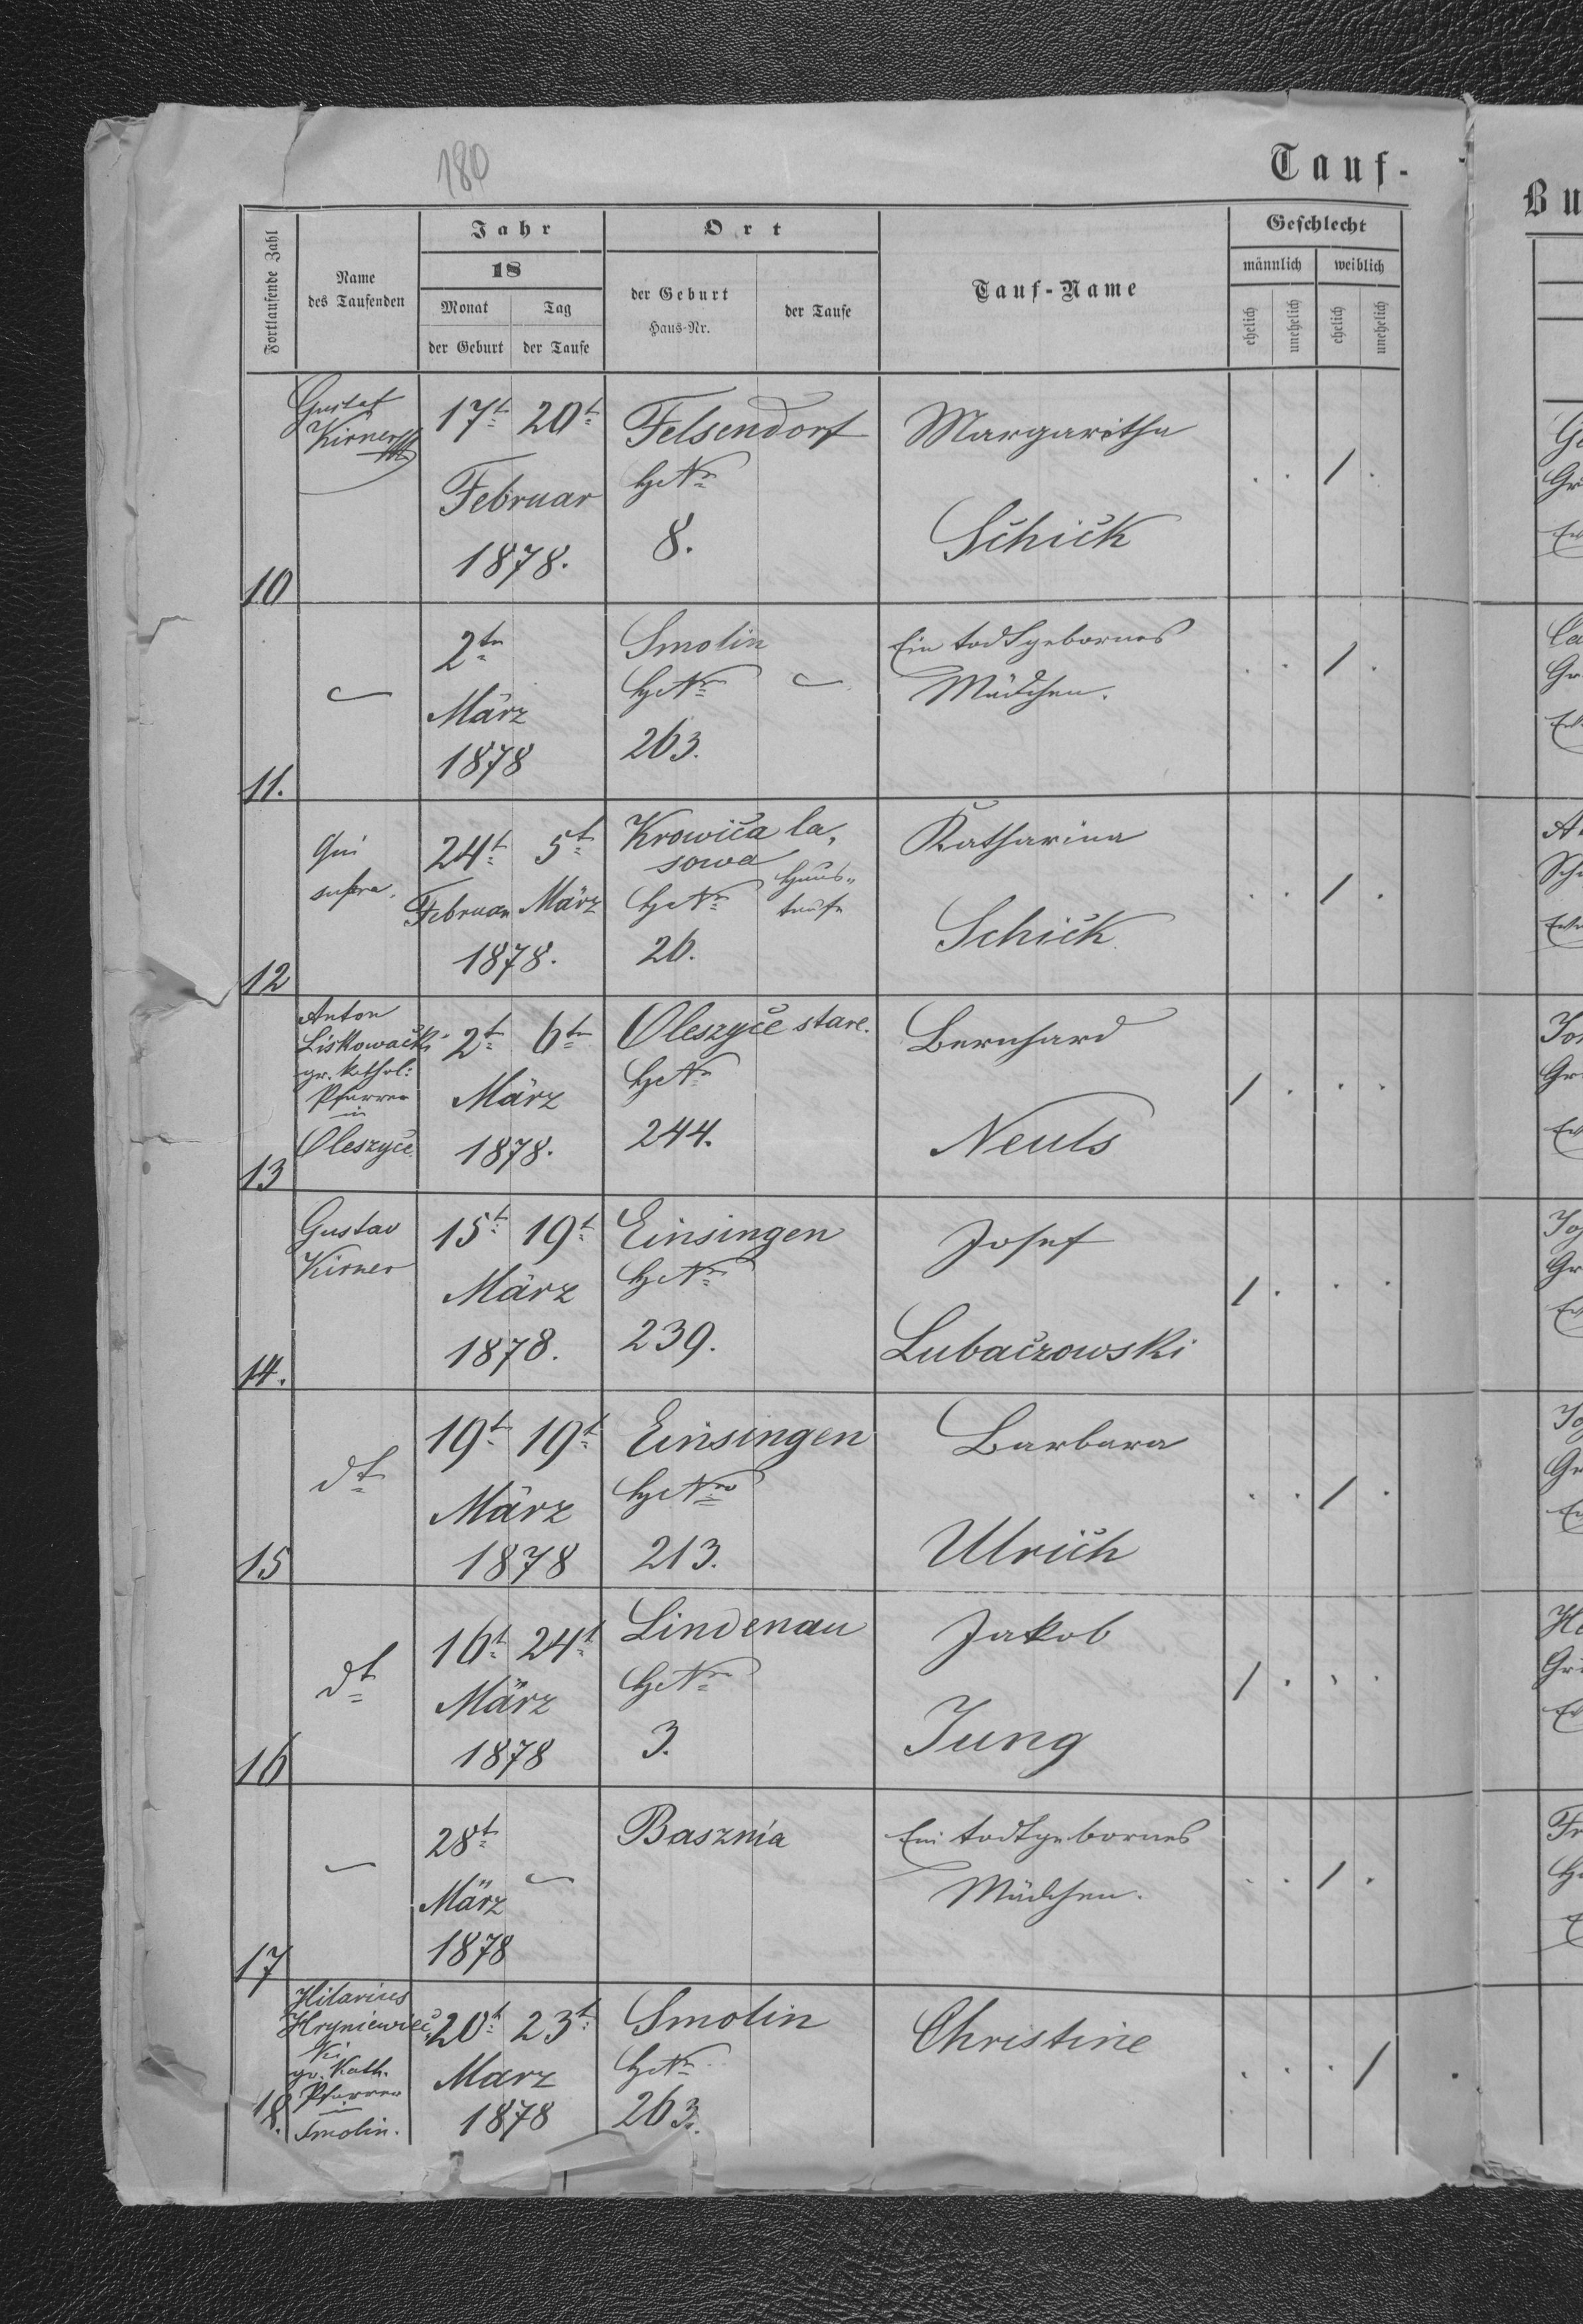 180
Tauf-
Bu
Fortlaufende Zahl
Name
des Taufenden
Jahr
18
Monat Tag
der Geburt der Taufe
Ort
der Geburt
Haus-Nr.
der Taufe
Tauf-Name
Geschlecht
männlich weiblich
ehelich unehelich ehelich unehelich
10
Gustaf
Kirner
17t 20t
Februar
1878.
Felsendorf
HNr
8.
Margaretha
Schick
. . / .
11.
2tn
März
1878
Smolin
HNr
263.
Ein todtgebornes
Mädchen.
. . / .
12
Qui
supra.
24t 5t
Februar März
1878.
Krowica la„
sowa
HNr
26.
Haus„
taufe
Katharina
Schick
. . / .
13
Anton
Liskowacki
gr. kathol:
Pfarrer
in
Oleszyce
2t 6tn
März
1878.
Oleszyce stare.
HNr
244.
Bernhard
Neuls
/ . . .
14.
Gustav
Kirner
15t 19t
März
1878.
Einsingen
HNr
239.
Josef
Lubaczowski
/ . . .
15
dt
19t 19t
März
1878
Einsingen
HNro
213.
Barbara
Ulrich
. . / .
16
dt
16t 24t
März
1878
Lindenau
HNr
3.
Jakob
Jung
/ . . .
17
28t
März
1878
Basznia
Ein todtgebornes
Mädchen.
. . / .
18.
Hilarius
Hryniewiec„
ki
gr. Kath.
Pfarrer
in
Smolin.
20t 23t
Marz
1878
Smolin
HNr
263.
Christine
. . . /